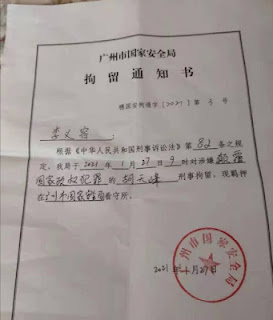 广州市国家安全局
拘留通知书
字〔2021〕第 号
：
根据《中华人民共和国刑事诉讼法》第82条之规
定，我局于2021年1月27日9时对涉嫌颠覆
国家政权犯罪的胡天峰刑事拘留，现羁押
在广州市国家安全局看守所。
广州市国家安全局
2021年1月27日